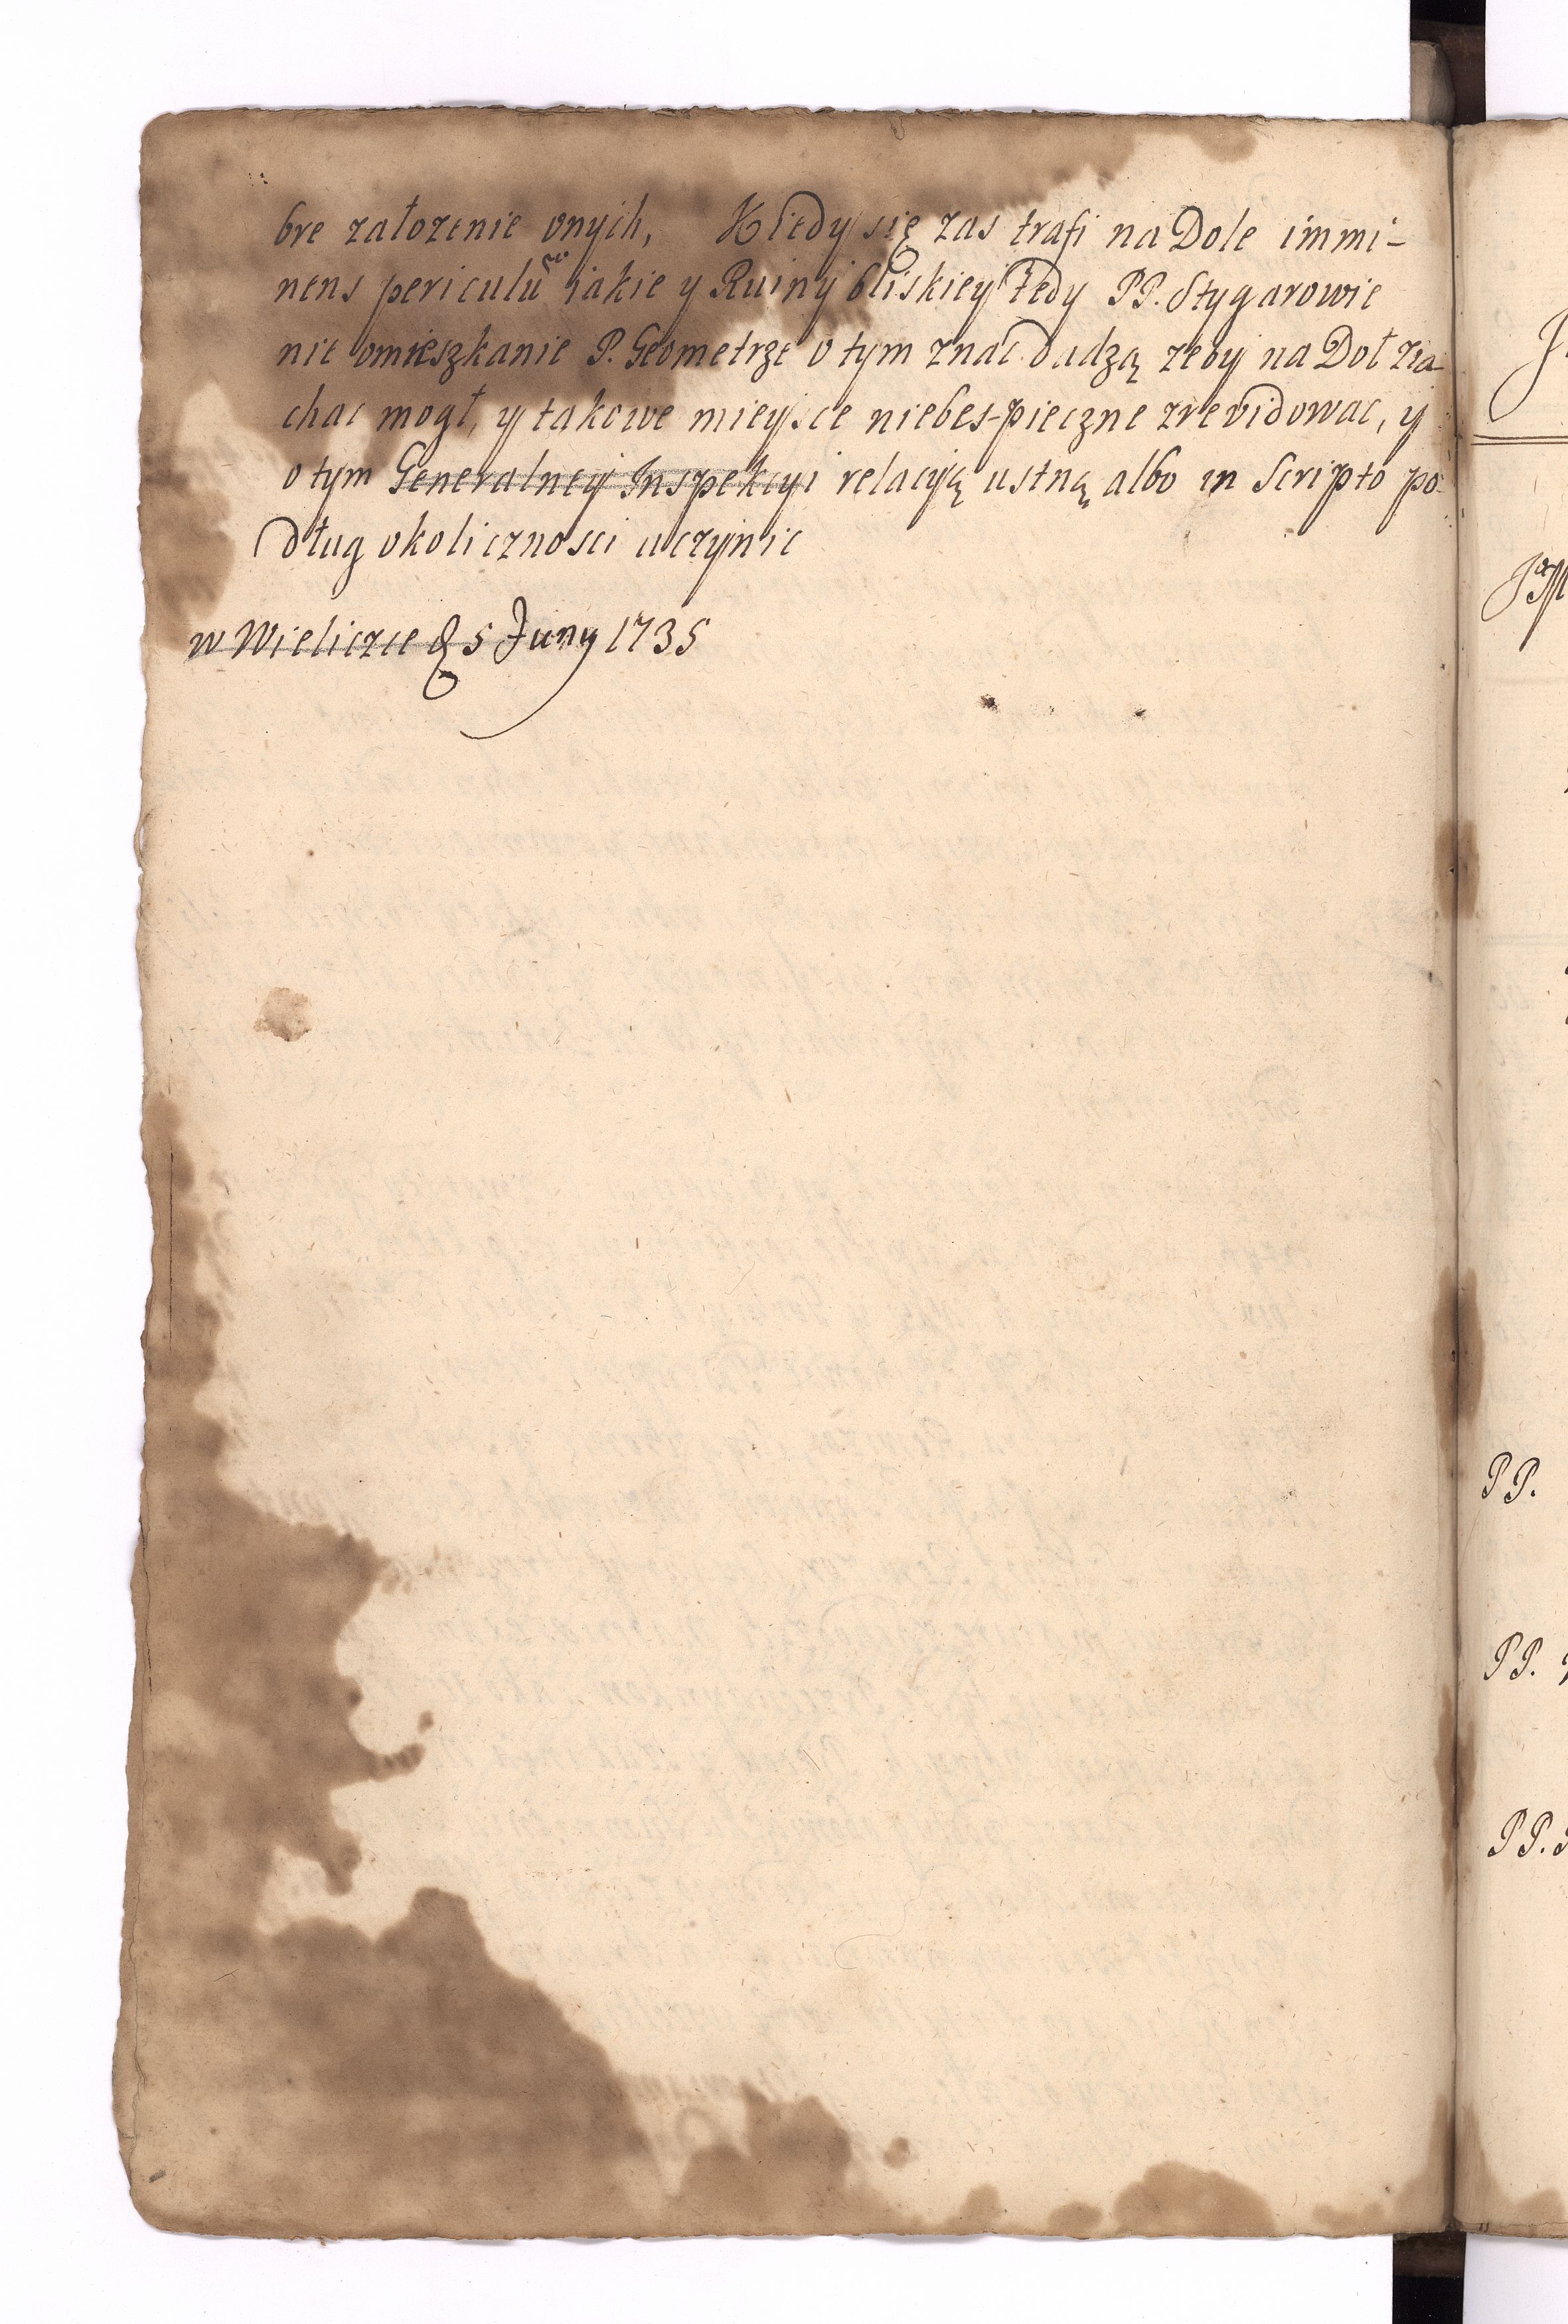 bre załozenie onych, Kiedy się zas trafi na Dole immi-
nens periculũ iakie y Ruiny bliskiey Tedy PP. Stygarowie
nie omieszkanie P. Geometrze o tym znac dadzą zeby na Doł zia-
chac mogł, y takowe mieysce niebes-pieczne zrevidowac, y
o tym Generalney Inspekcyi relacyją ustną albo in Scripto po-
dług okolicznosci uczynic
w Wieliczce D 5 Juny 1735
PP.
PP.
PP.